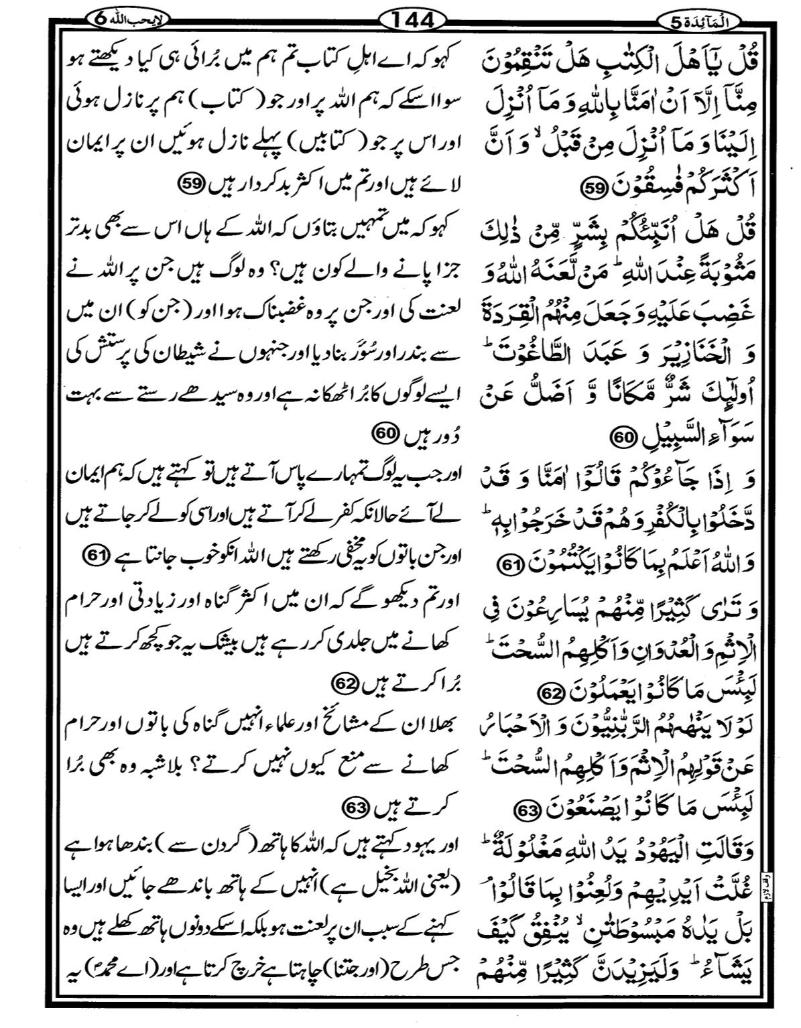 المآئدة 5
144
لایحب اللہ 6
قُلۡ يٰۤاَهۡلَ الۡكِتٰبِ هَلۡ تَنۡقِمُوۡنَ
مِنَّاۤ اِلَّاۤ اَنۡ اٰمَنَّا بِاللّٰهِ وَ مَاۤ اُنۡزِلَ
اِلَيۡنَا وَ مَاۤ اُنۡزِلَ مِنۡ قَبۡلُ ۙ وَ اَنَّ
اَكۡثَرَكُمۡ فٰسِقُوۡنَ 59
قُلۡ هَلۡ اُنَبِّئُكُمۡ بِشَرٍّ مِّنۡ ذٰلِكَ
مَثُوۡبَةً عِنۡدَ اللّٰهِ ؕ مَنۡ لَّعَنَهُ اللّٰهُ وَ
غَضِبَ عَلَيۡهِ وَ جَعَلَ مِنۡهُمُ الۡقِرَدَةَ
وَ الۡخَنَازِيۡرَ وَ عَبَدَ الطَّاغُوۡتَ ؕ
اُولٰٓٮِٕكَ شَرٌّ مَّكَانًا وَّ اَضَلُّ عَنۡ
سَوَآءِ السَّبِيۡلِ 60
وَ اِذَا جَآءُوۡكُمۡ قَالُوۡۤا اٰمَنَّا وَ قَدۡ
دَّخَلُوۡا بِالۡكُفۡرِ وَ هُمۡ قَدۡ خَرَجُوۡا بِهٖ ؕ
وَاللّٰهُ اَعۡلَمُ بِمَا كَانُوۡا يَكۡتُمُوۡنَ 61
وَ تَرٰى كَثِيۡرًا مِّنۡهُمۡ يُسَارِعُوۡنَ فِى
الۡاِثۡمِ وَ الۡعُدۡوَانِ وَ اَكۡلِهِمُ السُّحۡتَ ؕ
لَبِئۡسَ مَا كَانُوۡا يَعۡمَلُوۡنَ 62
لَوۡلَا يَنۡهٰٮهُمُ الرَّبّٰنِيُّوۡنَ وَ الۡاَحۡبَارُ
عَنۡ قَوۡلِهِمُ الۡاِثۡمَ وَ اَكۡلِهِمُ السُّحۡتَ ؕ
لَبِئۡسَ مَا كَانُوۡا يَصۡنَعُوۡنَ 63
وَقَالَتِ الۡيَهُوۡدُ يَدُ اللّٰهِ مَغۡلُوۡلَةٌ ؕ
غُلَّتۡ اَيۡدِيۡهِمۡ وَ لُعِنُوۡا بِمَا قَالُوۡا ۘ
بَلۡ يَدٰهُ مَبۡسُوۡطَتٰنِ ۙ يُنۡفِقُ كَيۡفَ
يَشَآءُ ؕ وَ لَيَزِيۡدَنَّ كَثِيۡرًا مِّنۡهُمۡ
وقف لازم
کہو کہ اے اہلِ کتاب تم ہم میں بُرائی ہی کیا دیکھتے ہو
سوا اسکے کہ ہم اللہ پر اور جو (کتاب) ہم پر نازل ہوئی
اور اس پر جو (کتابیں) پہلے نازل ہوئیں ان پر ایمان
لائے ہیں اور تم میں اکثر بدکردار ہیں 59
کہو کہ میں تمہیں بتاؤں کہ اللہ کے ہاں اس سے بھی بدتر
جزا پانے والے کون ہیں؟ وہ لوگ ہیں جن پر اللہ نے
لعنت کی اور جن پر وہ غضبناک ہوا اور (جن کو) ان میں
سے بندر اور سُوَر بنا دیا اور جنہوں نے شیطان کی پرستش کی
ایسے لوگوں کا بُرا ٹھکانہ ہے اور وہ سیدھے رستے سے بہت
دُور ہیں 60
اور جب یہ لوگ تمہارے پاس آتے ہیں تو کہتے ہیں کہ ہم ایمان
لے آئے حالانکہ کفر لے کر آتے ہیں اور اسی کو لے کر جاتے ہیں
اور جن باتوں کو یہ مخفی رکھتے ہیں اللہ انکو خوب جانتا ہے 61
اور تم دیکھو گے کہ ان میں اکثر گناہ اور زیادتی اور حرام
کھانے میں جلدی کر رہے ہیں بیشک یہ جو کچھ کرتے ہیں
بُرا کرتے ہیں 62
بھلا ان کے مشائخ اور علماء انہیں گناہ کی باتوں اور حرام
کھانے سے منع کیوں نہیں کرتے؟ بلاشبہ وہ بھی بُرا
کرتے ہیں 63
اور یہود کہتے ہیں کہ اللہ کا ہاتھ (گردن سے) بندھا ہوا ہے
(یعنی اللہ بخیل ہے) انہیں کے ہاتھ باندھے جائیں اور ایسا
کہنے کے سبب ان پر لعنت ہو بلکہ اسکے دونوں ہاتھ کھلے ہیں وہ
جس طرح (اور جتنا) چاہتا ہے خرچ کرتا ہے اور (اے محمدؐ) یہ